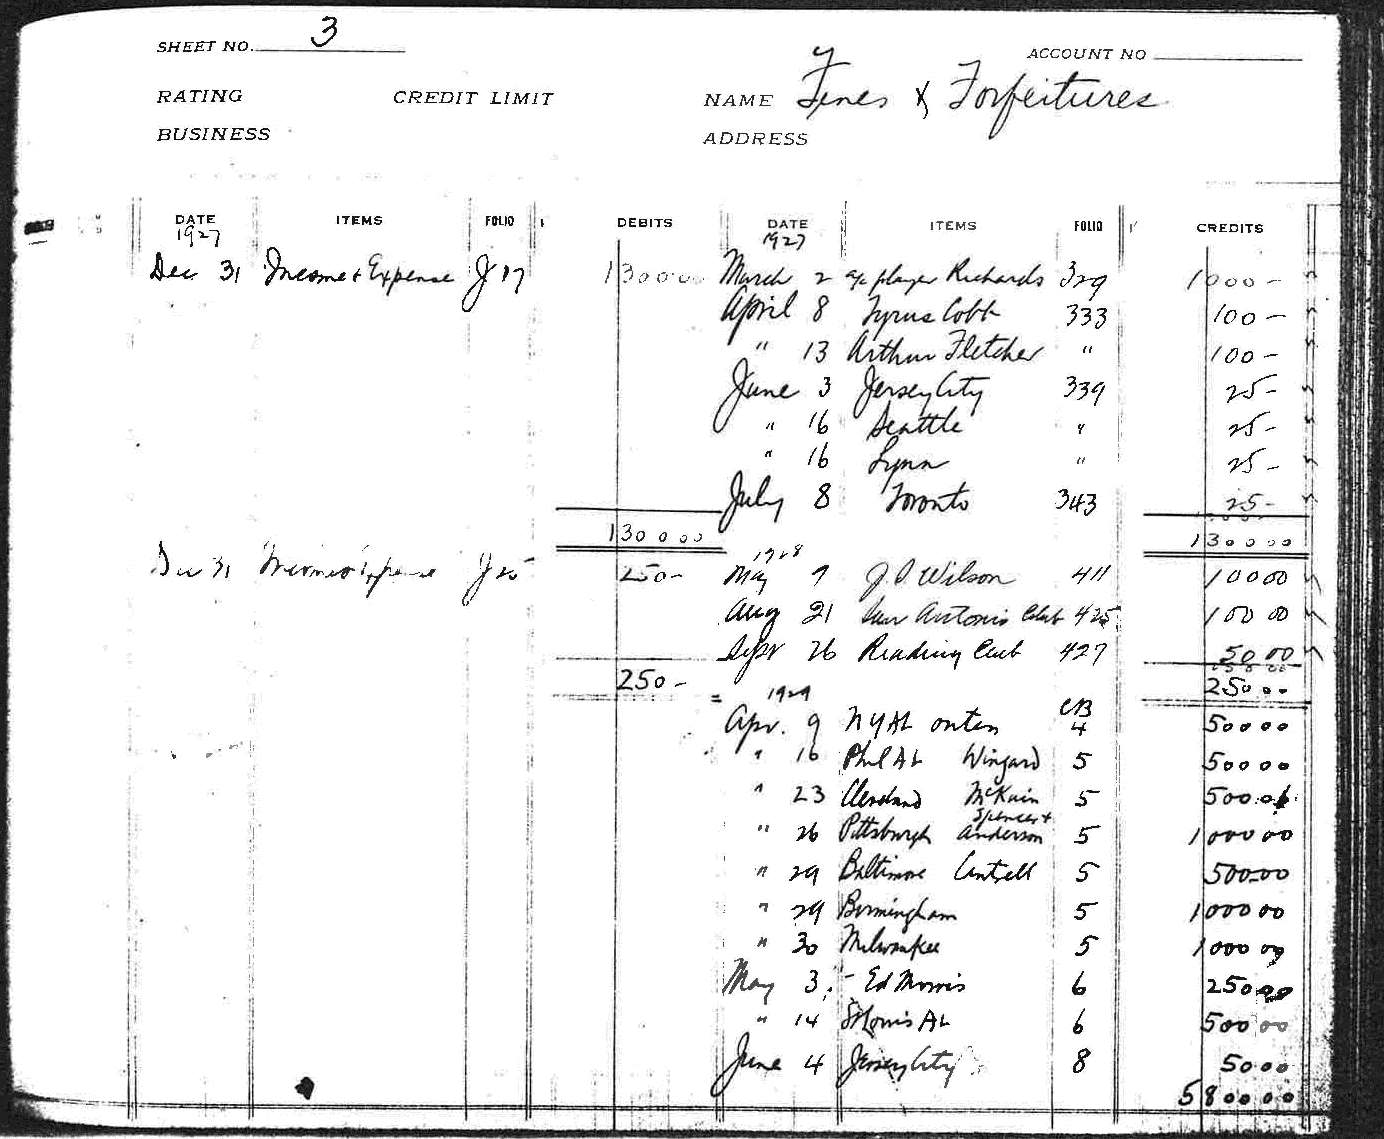 SHEET NO. 3 ACCOUNT NO
RATING CREDIT LIMIT NAME Fines & Forfeitures
BUSINESS ADDRESS
DATE ITEMS FOLIO DEBITS DATE ITEMS FOLIO CREDITS
1927 1927
Dec 31 Income & Expense J17 1300 00 March 2 a/c player Richards 329 1000 -
April 8 Tyrus Cobb 333 100 -
" 13 Arthur Fletcher " 100 -
June 3 Jersey City 339 25 -
" 16 Seattle " 25 -
" 16 Lynn " 25 -
July 8 Toronto 343 25 -
1300 00 1300 00
1928
Dec 31 Income & Expense J25 250 - May 7 J.O. Wilson 411 100 00
Aug 21 San Antonio Club 425 100 00
Sept 26 Reading Club 427 50 00
250 - 250 00
1929
Apr. 9 NYAL 4 500 00
CB
" 16 Phil AL Wingard 5 500 00
" 23 Cleveland McKain 5 500 00
" 26 Pittsburgh Spencer & Anderson 5 1000 00
" 29 Baltimore Cantrell 5 500 00
" 29 Birmingham 5 1000 00
" 30 Milwaukee 5 1000 00
May 3 - Ed Morris 6 250 00
" 14 St Louis AL 6 500 00
June 4 Jersey City 8 50 00
5800 00